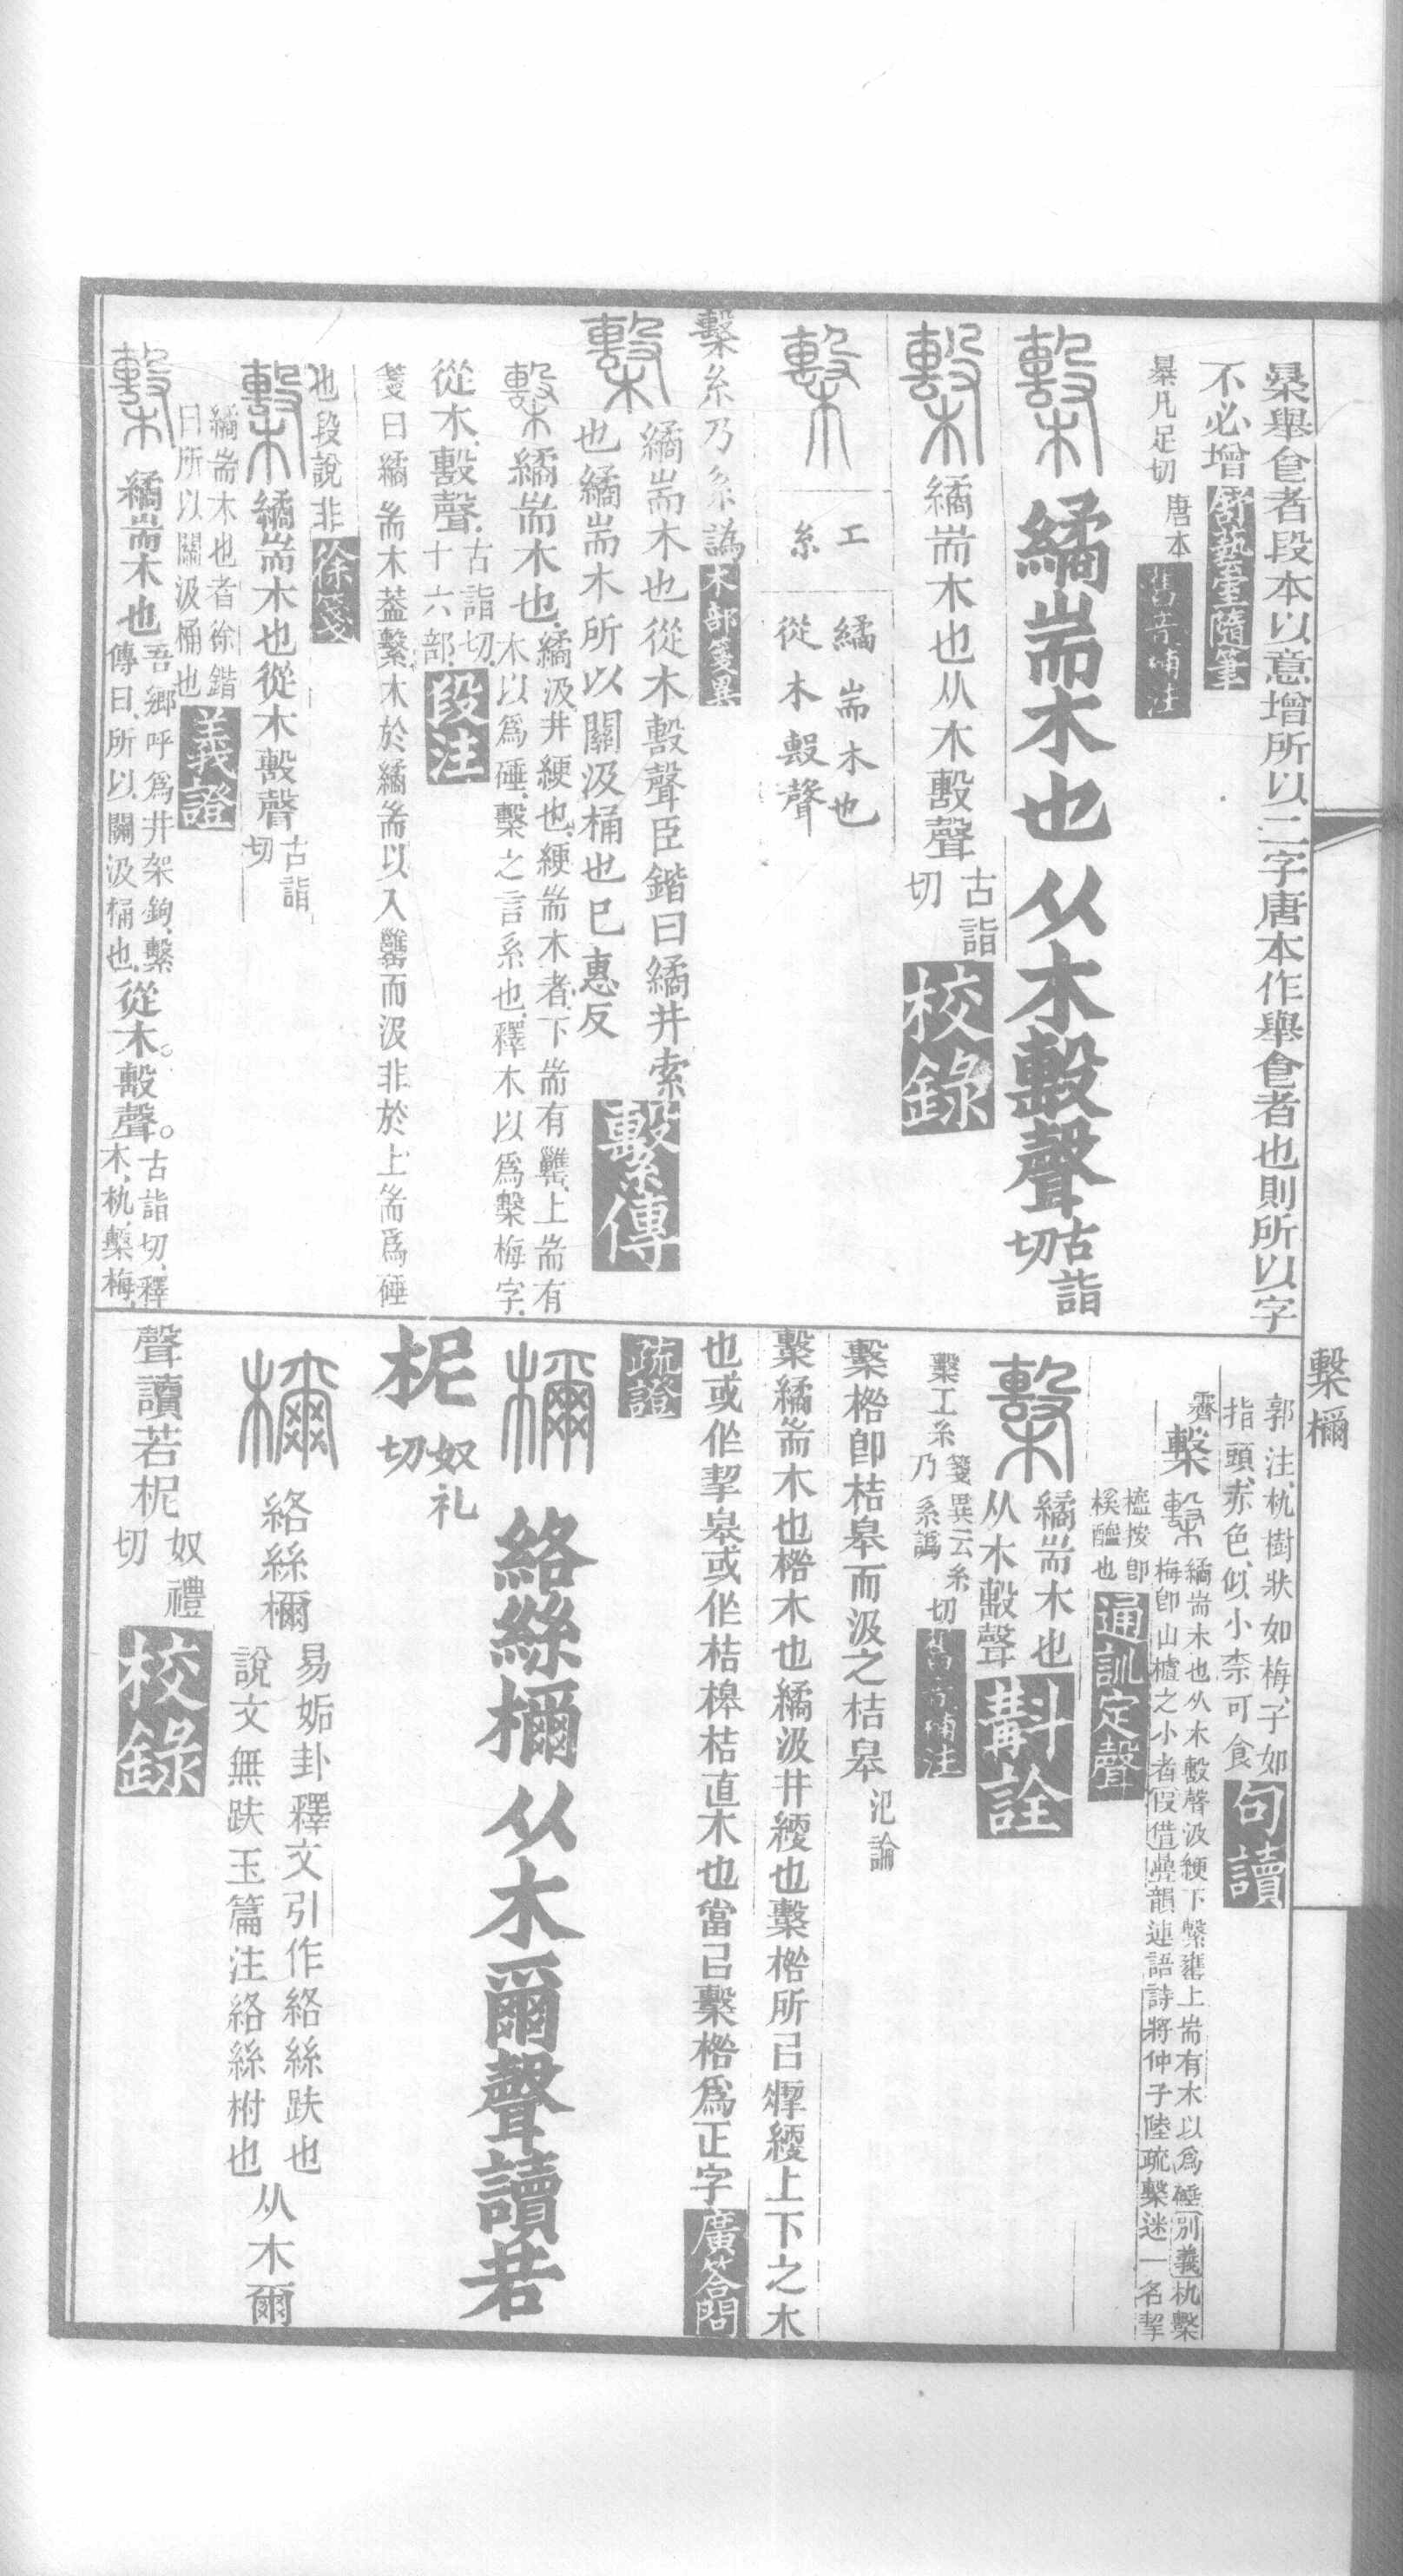 梮舉食者段本以意增所以二字唐本作舉食者也則所以字
不必增舒藝室隨筆
梮凡足切唐本舊音補注
繘耑木也从木毄聲古詣切
繘耑木也从木毄聲古詣切校錄
工糸
繘耑木也
從木毄聲
檕糸乃系譌木部箋異
繘耑木也從木毄聲臣鍇曰繘井索
也繘耑木所以關汲桶也已惠反繫傳
繘耑木也繘汲井綆也綆耑木者下耑有罋上耑有
木以爲硾檕之言系也釋木以爲檕梅字
從木毄聲古詣切十六部段注
箋曰繘耑木葢繫木於繘耑以入罋而汲非於上耑爲硾
也段說非徐箋
繘耑木也從木毄聲古詣切
繘耑木也者徐鍇
曰所以關汲桶也義證
繘耑木也吾鄉呼爲井架鉤繫
傳曰所以關汲桶也從木毄聲古詣切釋
木朹檕梅
檕檷
郭注朹樹狀如梅子如
指頭赤色似小柰可食句讀
霽檕繘耑木也从木毄聲汲綆下繫罋上耑有木以爲硾別義朹檕
梅卽山樝之小者假借疊韻連語詩將仲子陸疏檕迷一名挈
橀按卽
榽醯也通訓定聲
繘耑木也
从木毄聲斠詮
檕工糸切箋異云糸
乃系譌舊音補注
檕桰卽桔皋而汲之桔皋氾論
檕繘耑木也桰木也繘汲井綆也檕桰所㠯上下之木
也或作挈皋或作桔槔桔直木也當㠯檕桰爲正字廣答問
疏證
絡絲檷从木爾聲讀若
柅奴礼切
絡絲檷易姤卦釋文引作絡絲趺也
說文無趺玉篇注絡絲柎也从木爾
聲讀若柅奴禮切校錄